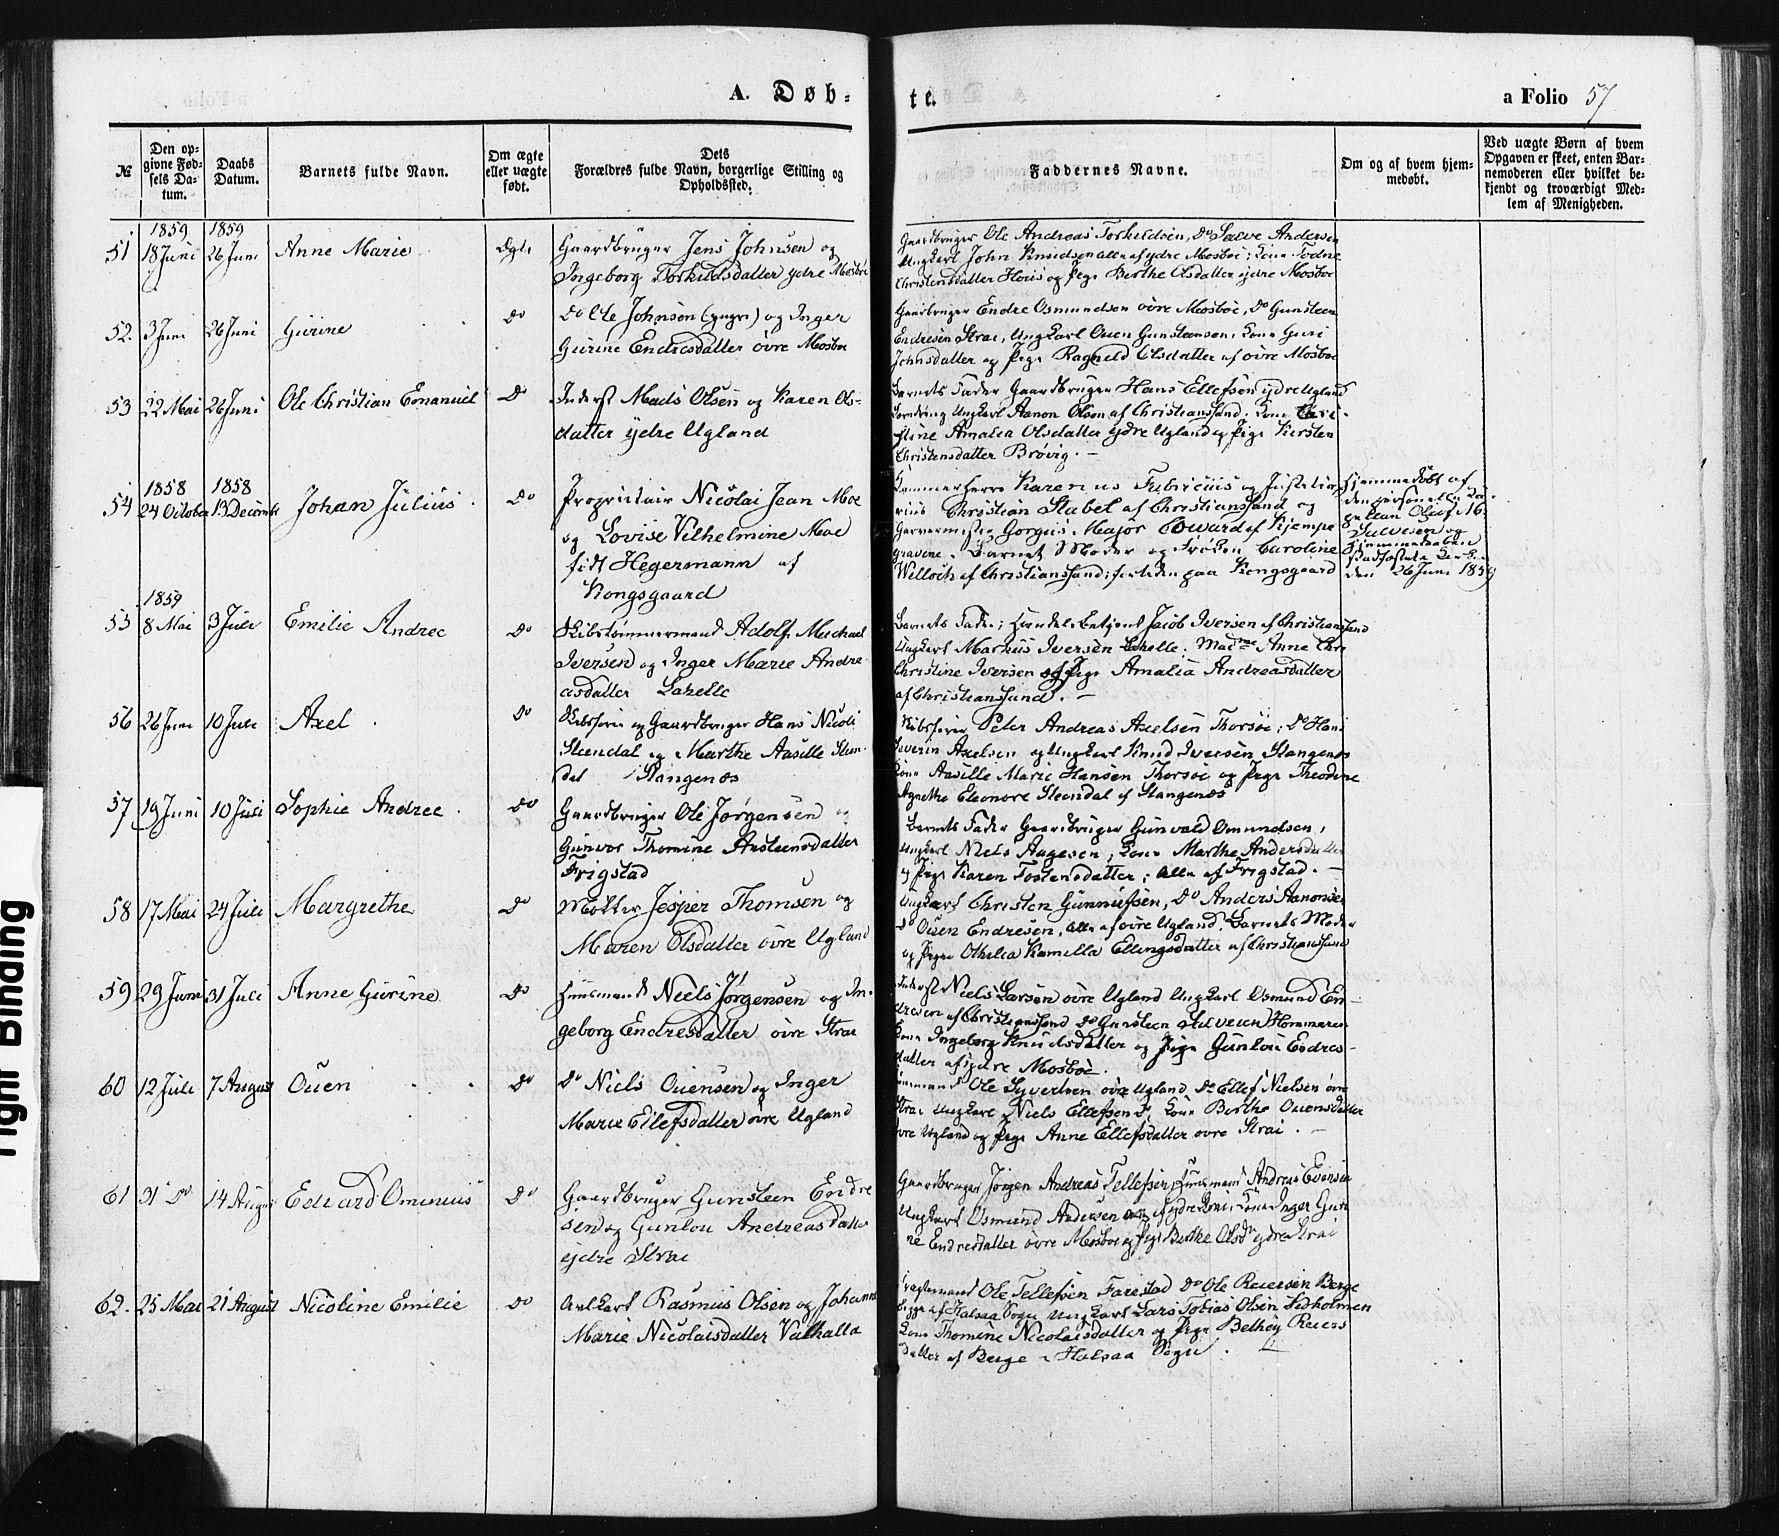 A. Døb-
te.
a Folio 57
№
Den op-
givne Fød-
sels Da-
tum.
Daabs
Datum.
Barnets fulde Navn.
Om ægte
eller uægte
født.
Dets
Forældres fulde Navn, borgerlige Stilling og
Opholdssted:
Faddernes Navne.
Om og af hvem hjem-
medøbt.
Ved uægte Børn af hvem
Opgaven er skeet, enten Bar-
nemoderen eller hvilket be-
kjendt og troværdigt Med-
lem af Menigheden.
1859 1859
51 18 Juni 26 Juni Anne Marie Ægte
Gaardbruger Jens Johnsen og
Ingeborg Torkildsdatter ydre Mosbøe
Gaardbruger Ole Andreas Torkildsen, Do Salve Andersen
Ungkarl John Knudsen alle af ydre Mosbøe; Kone Todne
Christensdatter Høiis og Pige Berthe Olsdatter ydre Mosbøe
52. 3 Juni 26 Juni Gurine Do
Do Ole Johnsen (yngre) og Inger
Gurine Endresdatter øvre Mosbøe
Gaardbruger Endre Osmundsen øvre Mosbøe, Do Gunsteen
Endresen Strai, Ungkarl Ouen Gunsteensen, Kone Guri
Johnsdatter og Pige Ragnild Olsdatter af øvre Mosbøe
53 22 Mai 26 Juni Ole Christian Emanuel Do
Inderst Mads Olsen og Karen Ols-
datter ydre Ugland
Barnets Fader Gaardbruger Hans Ellefsen ydre Ugland
Ungkarl Aanon Olsen af Christianssand. Kone
stine Amalia Olsdatter ydre Ugland og Pige Kirsten
Christensdatter Brøvig. —
1858 1858
54 24 October 13 Decemb Johan Julius Do
Proprietair Nicolai Jean Moe
og Lovise Vilhelmine Moe
født Hegermann af
Kongsgaard
Kammerherre Fabricius og
Christian Stabel af Christianssand og
Major af Kjempe
gravene. Barnets Moder og Frøken Caroline
Willoch af Christianssand;
Hjemmedøbt af
den
Oluf N.
Salvesen og
Hjemmedaaben
stadfæstet
den 26 Juni 1859
1859
55 8 Mai 3 Juli Emilie Andree Do
Skibstømmermand Adolf Michael
Iversen og Inger Marie Andre-
asdatter Lahelle
Barnets Fader; Handels Betjent Jacob Iversen af Christianssand
Ungkarl Markus Iversen Lahelle. Madme Anne
Christine Iversen og Pige Amalia Andreasdatter
af Christianssand. —
56 26 Juni 10 Juli Axel Do
Skibsfører og Gaardbruger Hans Nicoli
Steendal og Marthe Aasille Steen-
dal Stangenæs
Skibsfører Peter Andreas Axelsen Thorsøe; Do Hans
Severin Axelsen og Ungkarl Knud Iversen Stangenæs
Kone Aasille Marie Hansen Thorsøe og Pige Theodine
Agnethe Eleonore Steendal af Stangenæs
57 19 Juni 10 Juli Sophie Andree Do
Gaardbruger Ole Jørgensen og
Gunvor Thomine Aasteensdatter
Frigstad
Barnets Fader Gaardbruger Gunvald Omundsen,
Ungkarl Niels Aagesen, Kone Marthe Andersdatter
og Pige Karen Tostensdatter; alle af Frigstad. —
58 17 Mai 24 Juli Margrethe Do
Møller Jesper Thomsen og
Maren Olsdatter øvre Ugland
Ungkarl Christen Gunnufsen, Do Anders Aanonsen
Do Ouen Endresen, alle af øvre Ugland. Barnets Moder
og Pige Othilia Kamilla Ellingsdatter af Christianssand
59 29 Juni 31 Juli Anne Gurine Do
Huusmand Niels Jørgensen og In-
geborg Endresdatter øvre Strai
Inderst Niels Larsen øvre Ugland Ungkarl Osmund En-
dresen af Christianssand Do Gunsteen Hommeren
Kone Ingeborg Knudsdatter og Pige Gunlou Endres-
datter af ydre Mosbøe.
60 12 Juli 7 August Ouen Do
Do Niels Ouensen og Inger
Marie Ellefsdatter øvre Ugland
Huusmand Ole Syvertsen øvre Ugland, Do Ellef Nielsen øvre
Strai Ungkarl Niels Ellefsen Do, Kone Berthe Ouensdatter
øvre Ugland og Pige Anne Ellefsdatter øvre Strai. —
61 31 Do 14 Augus Edvard Ominius Do
Gaardbruger Gunsteen Endre
sen og Gunlou Andreasdatter
ydre Strai
Gaardbruger Jørgen Andreas Tellefsen, Huusmand Andreas Evensen
Ungkarl Osmund Andersen Kone Inger Guri
ne Endresdatter øvre Mosbøe og Pige Berthe Olsdr ydre Strai
62. 25 Mai 21 August Nicoline Emilie Do
Avlskarl Rasmus Olsen og Johanne
Marie Nicolaisdatter Valhalla
Ole Tellefsen Farestad Do Ole Reiersen Berge
af Halsaa Sogn Ungkarl Lars Tobias Olsen
Kone Thomine Nicolaisdatter og Pige Reiers
datter af Berge Halsaa Sogn.
Tight Binding